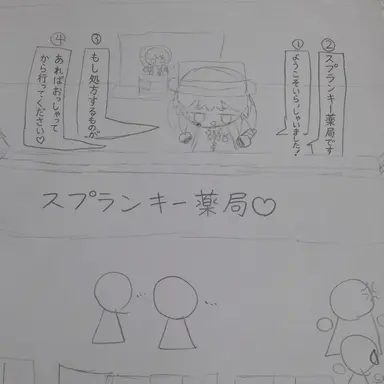 ①
ようこそいらっしゃいました！
②
スプランキー薬局です
③
もし処方するものが
④
あればおっしゃって
から行ってください♡
スプランキー薬局♡
...
...